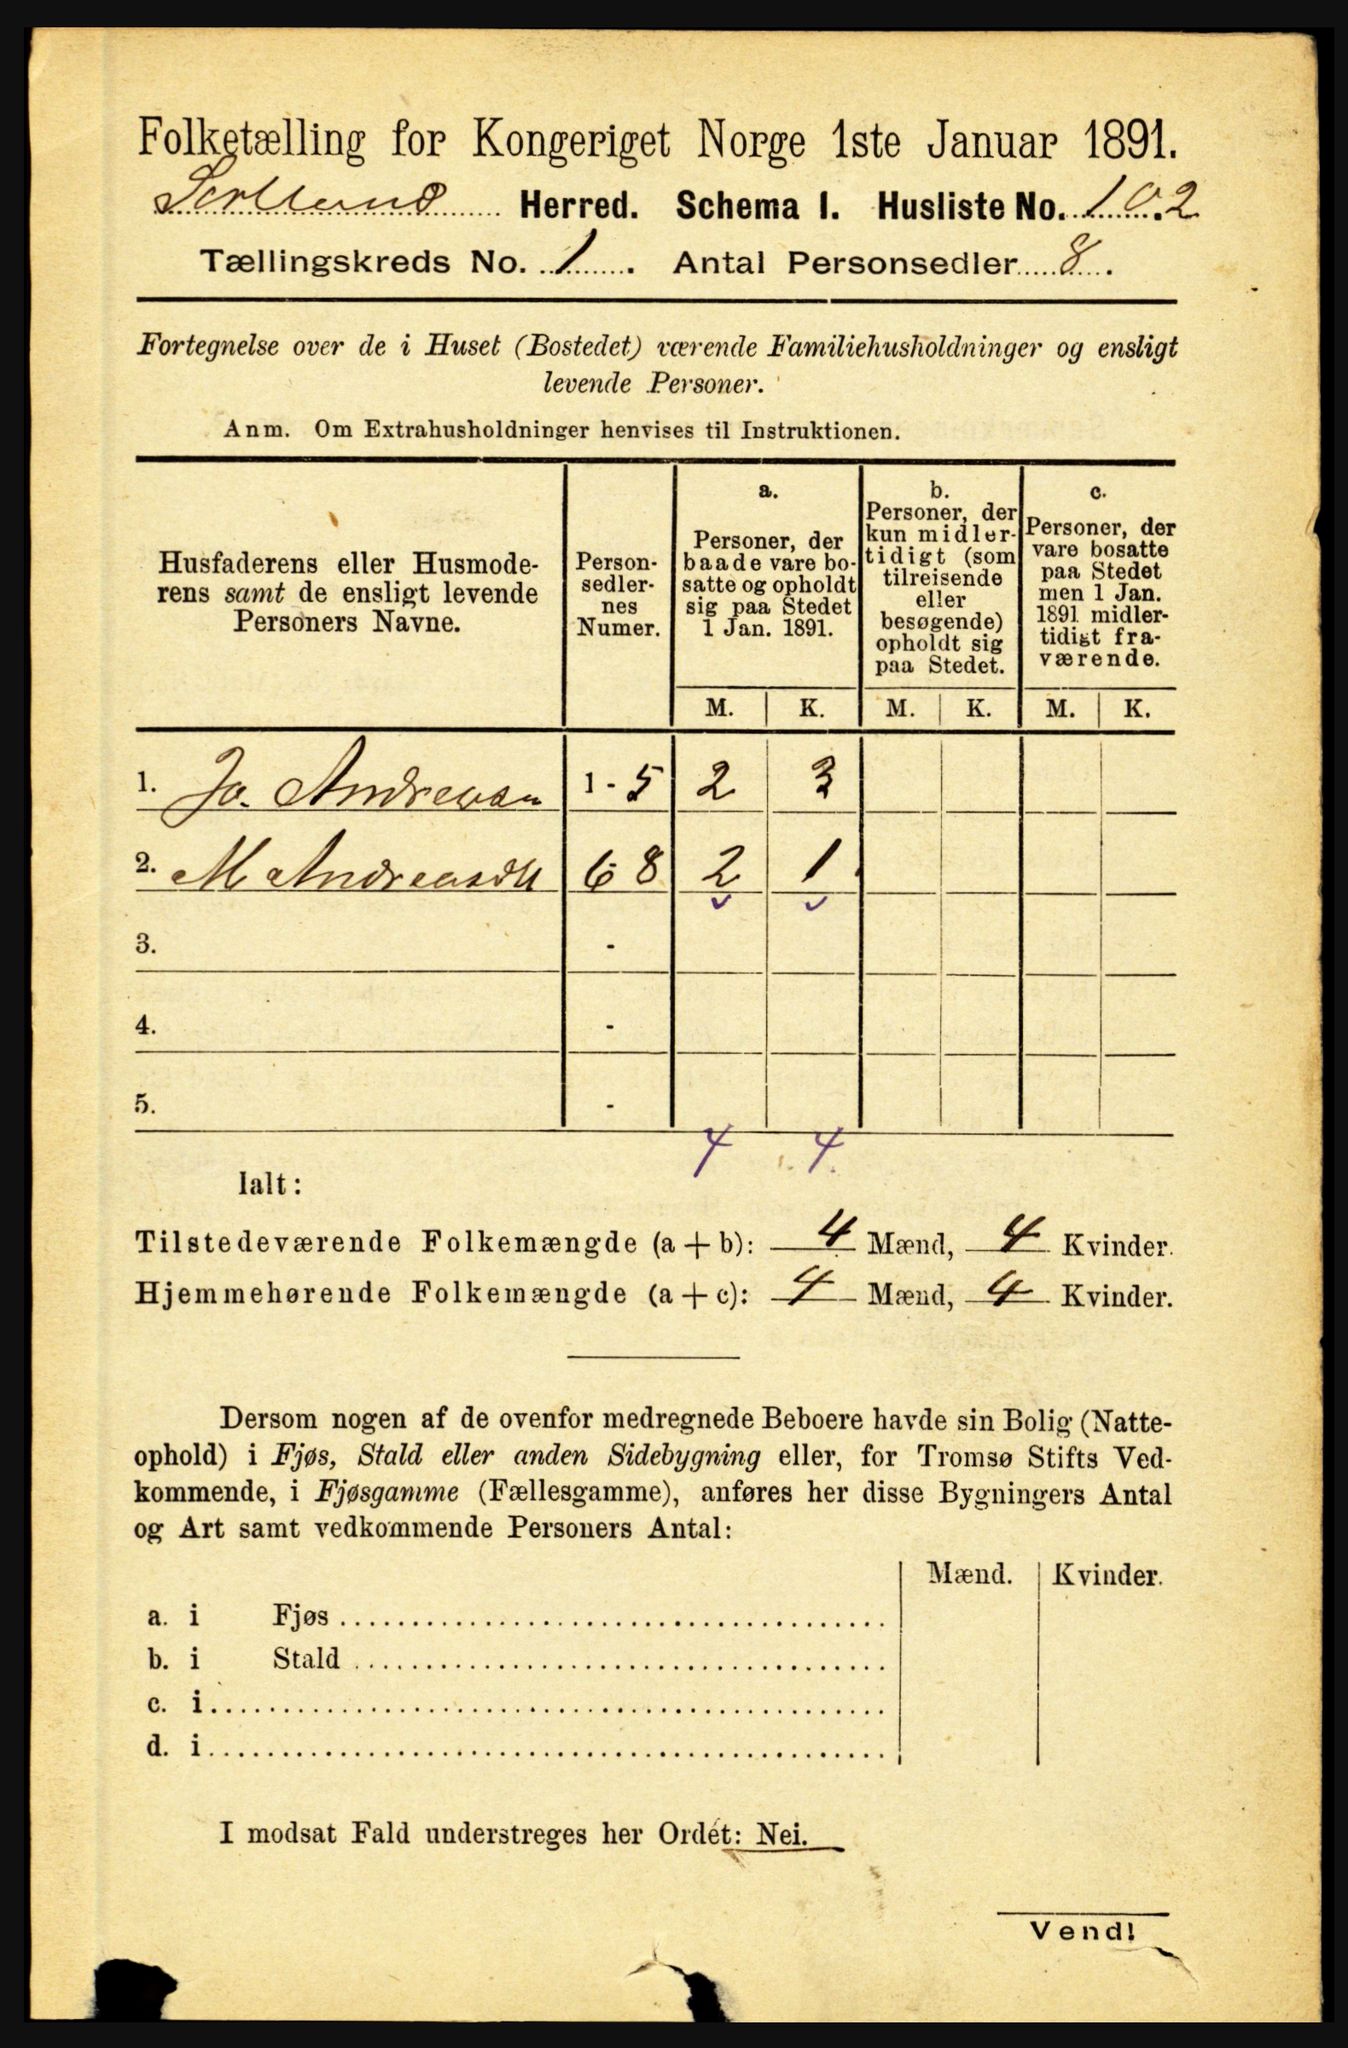 Folketælling for Kongeriget Norge 1ste Januar 1891.
Herred. Schema I. Husliste No. 102
Tællingskreds No. 1. Antal Personsedler 8.
Fortegnelse over de i Huset (Bostedet) værende Familiehusholdninger og ensligt
levende Personer.
Anm. Om Extrahusholdninger henvises til Instruktionen.
Husfaderens eller Husmode-
rens samt de ensligt levende
Personers Navne.
Person-
sedler-
nes
Numer.
a.
Personer, der
baade vare bo-
satte og opholdt
sig paa Stedet
1 Jan. 1891.
b.
Personer, der
kun midler-
tidigt (som
tilreisende
eller
besøgende)
opholdt sig
paa Stedet.
c.
Personer, der
vare bosatte
paa Stedet
men 1 Jan.
1891 midler-
tidigt fra-
værende.
M. K. M. K. M. K.
1. Jo. Andreasen 1 - 5 2 3
2. M Andreasdtt 6 - 8 2 1
3. -
4. -
5. -
4 4.
Ialt:
Tilstedeværende Folkemængde (a + b): 4 Mænd, 4 Kvinder.
Hjemmehørende Folkemængde (a + c): 4 Mænd, 4 Kvinder.
Dersom nogen af de ovenfor medregnede Beboere havde sin Bolig (Natte-
ophold) i Fjøs, Stald eller anden Sidebygning eller, for Tromsø Stifts Ved-
kommende, i Fjøsgamme (Fællesgamme), anføres her disse Bygningers Antal
og Art samt vedkommende Personers Antal:
Mænd. Kvinder.
a. i Fjøs
b. i Stald
c. i
d. i
I modsat Fald understreges her Ordet: Nei.
Vend!